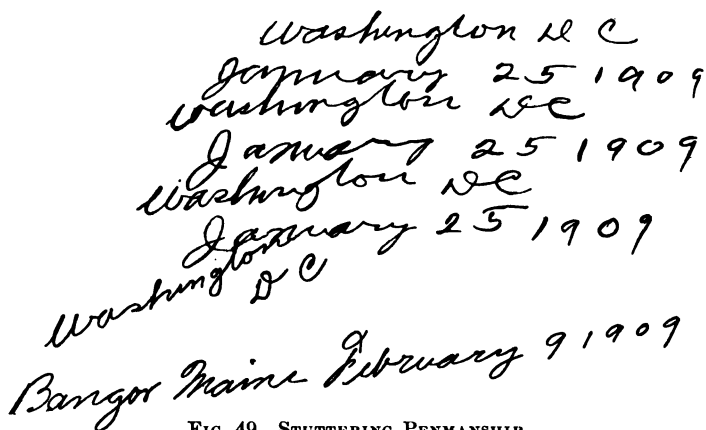 Washington D C
January 25 1909
Washington DC
January 25 1909
Washington DC
January 25 1909
Washington
D C
Bangor Maine February 9 1909
FIG. 49. STUTTERING PENMANSHIP